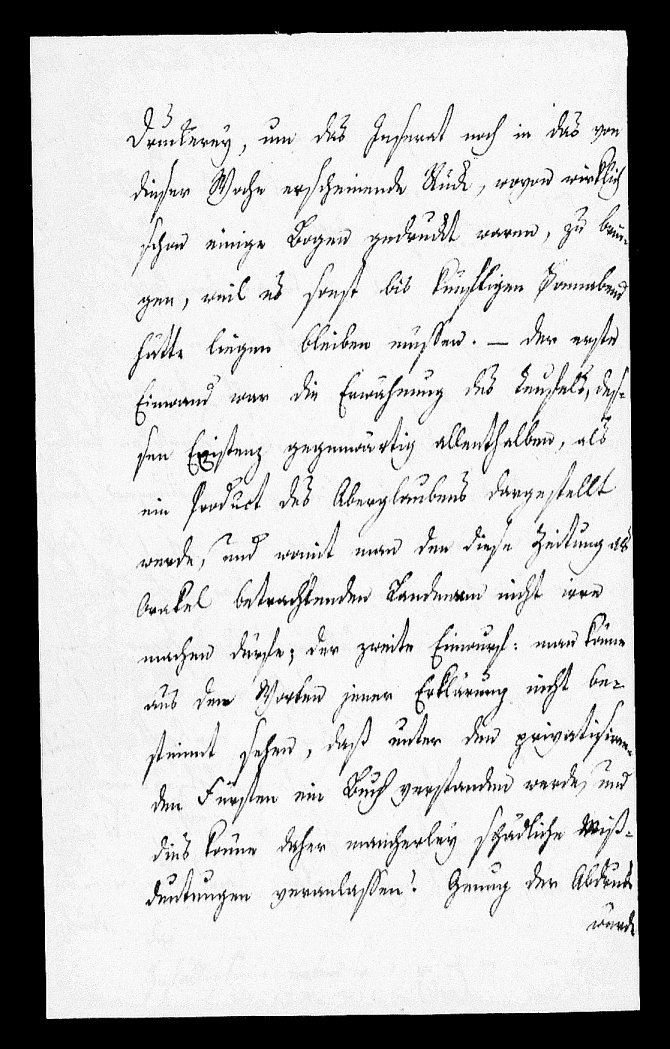 Druckerey, um das Inserat noch in das von
dieser Woche erscheinende Stück, wovon wirklich
schon einige Bogen gedruckt waren, zu brin-
gen, weil es sonst bis künftigen Sonnabend
hätte liegen bleiben müssen. — Der erste
Einwand war die Erwähnung des Teufels, des-
sen Existenz gegenwärtig allenthalben, als
ein Product des Aberglaubens dargestellt
werde, und womit man den diese Zeitung als
Orakel betrachtenden Landmann nicht irre
machen dürfe; der zweite Einwurf: man könne
aus den Worten jener Erklärung nicht be-
stimmt sehen, daß unter den privatisiren-
den Fürsten ein Buch verstanden werde, und
dies könne daher mancherley schädliche Miß-
deutungen veranlassen. Genung der Abdruck
würde